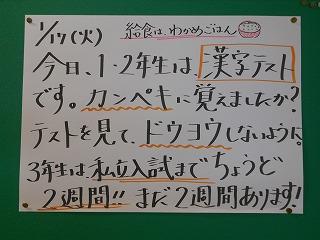 1/17(火) 給食は、わかめごはん
今日、1・2年生は、漢字テスト
です。カンペキに覚えましたか?
テストを見て、ドウヨウしないように。
3年生は、私立入試までちょうど
2週間!! まだ2週間あります!